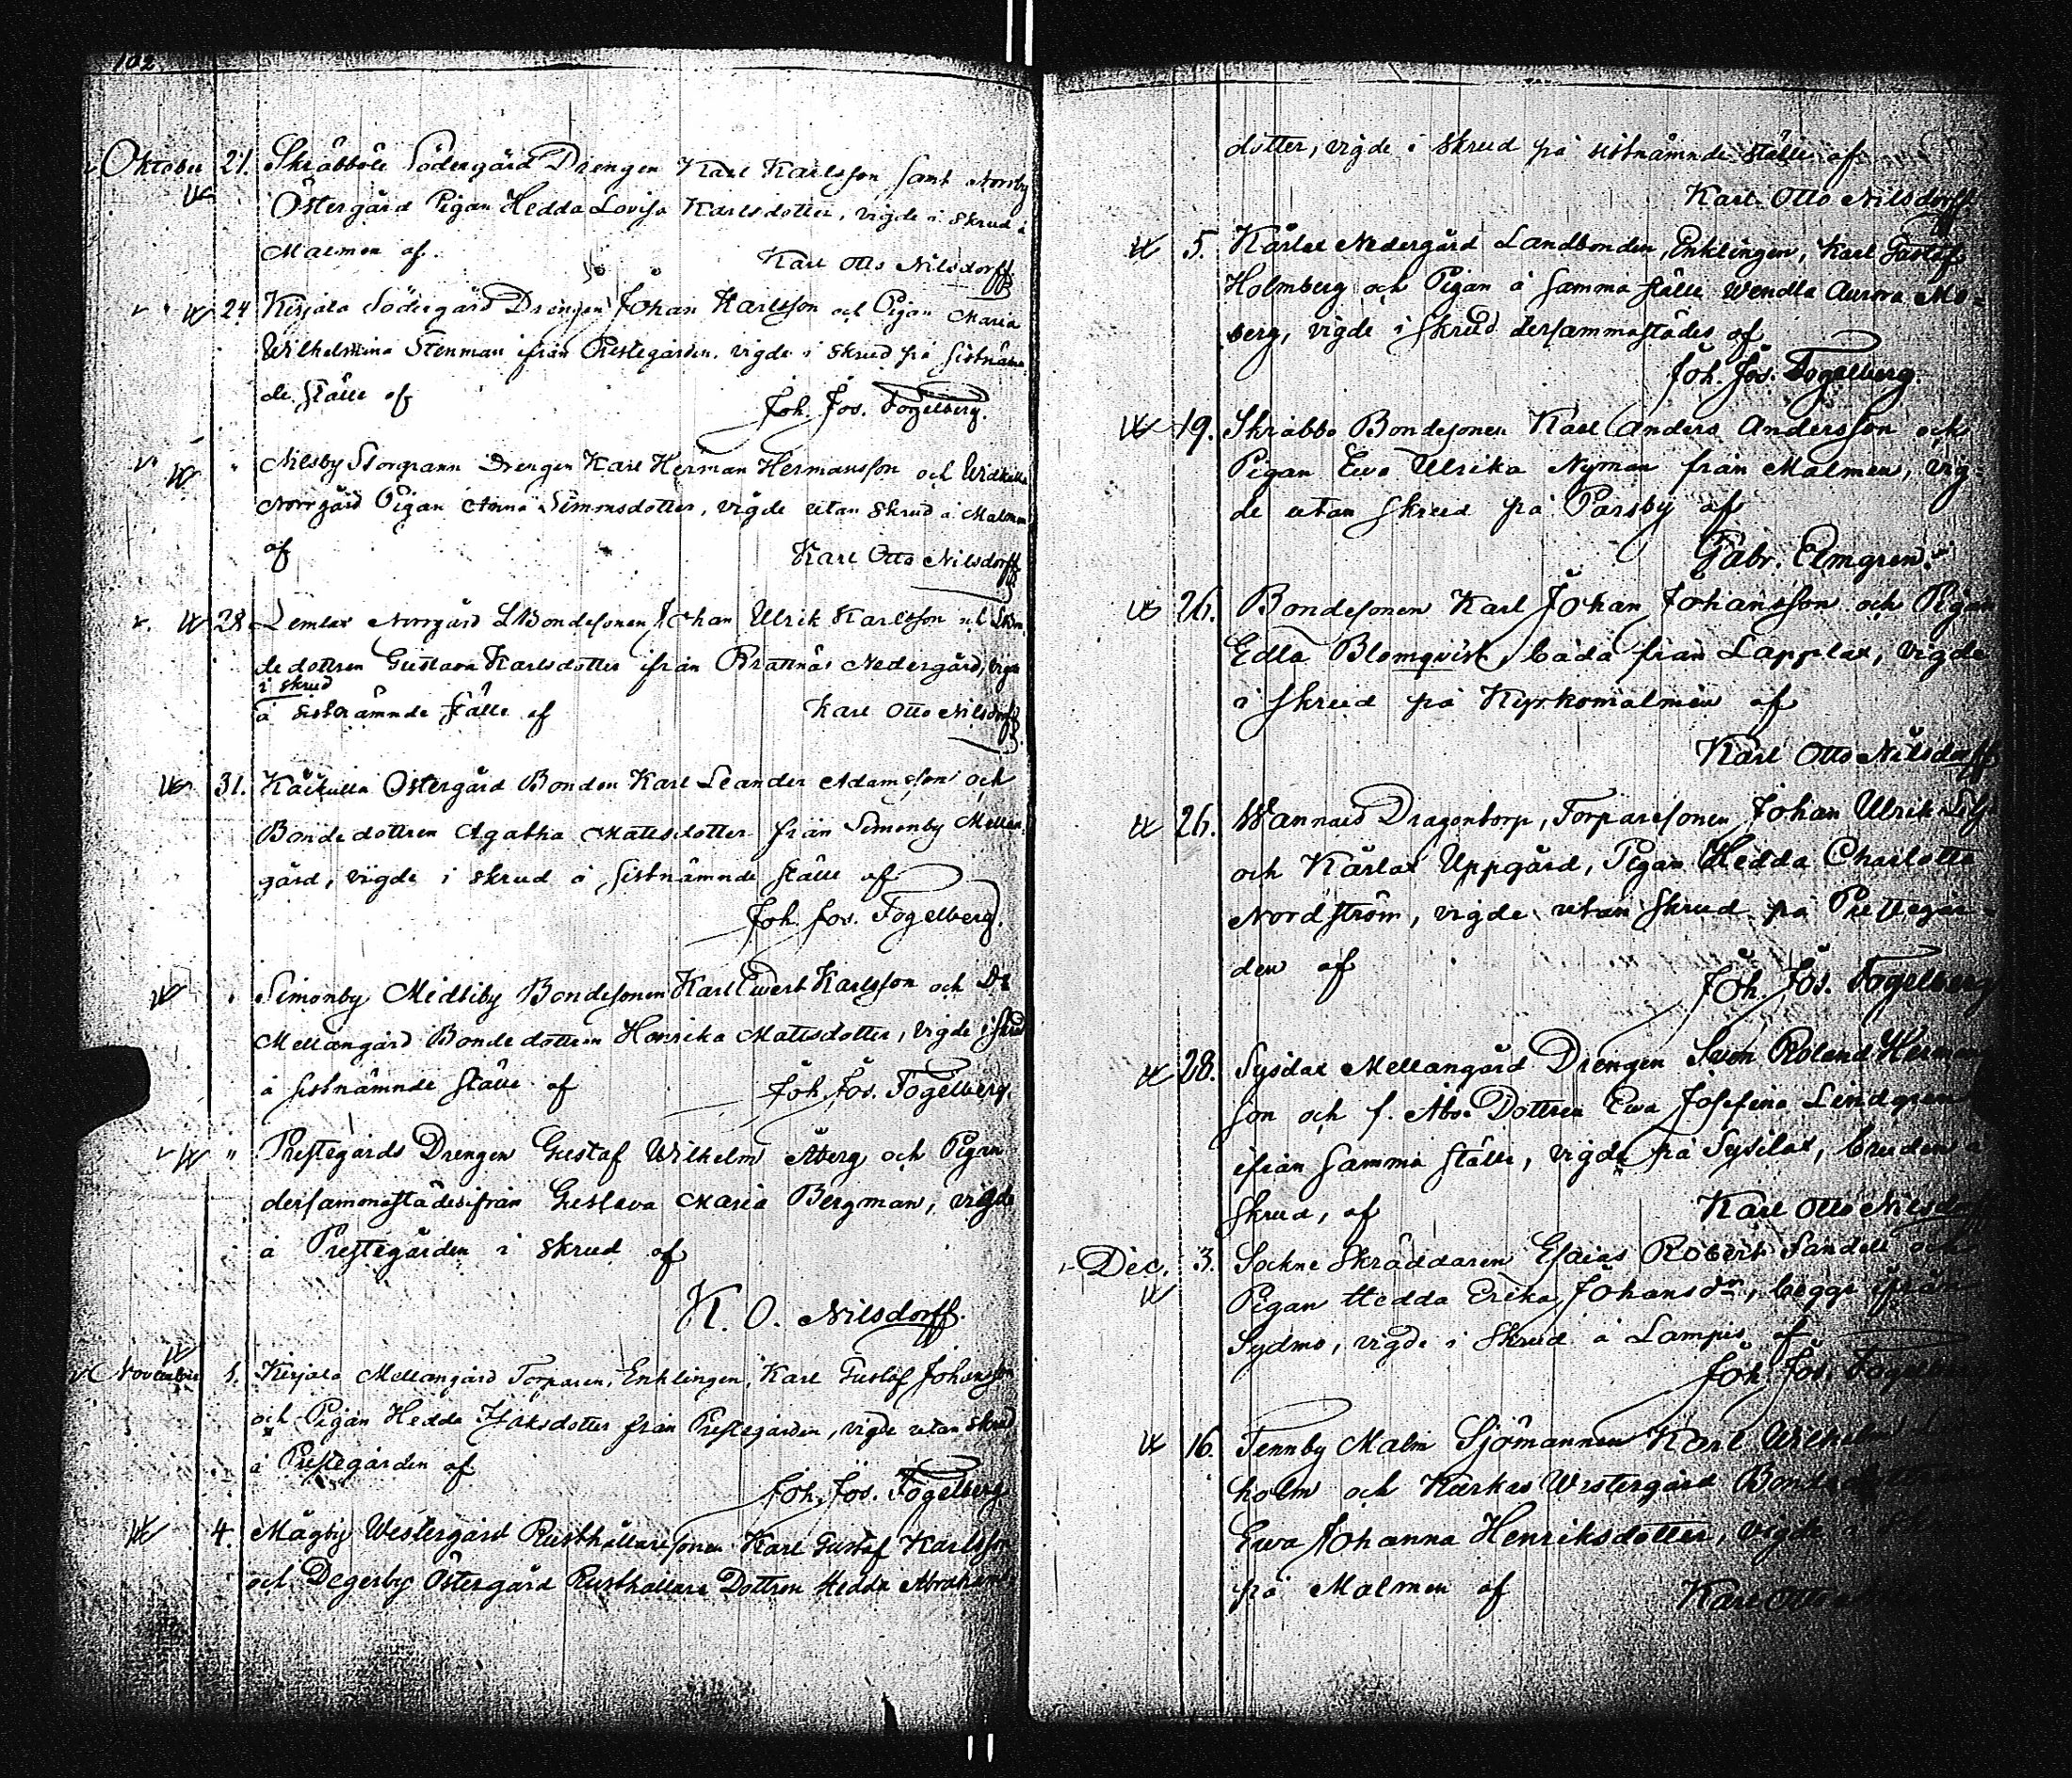 102.
Oktober 21. Skräbböle Södergård Drengen Karl Karlsson samt Norrby
Östergård Pigan Hedda Lovisa Karlsdotter, vigde i skrud å
Malmen af
Karl Otto Nilsdorff
24 Kirjala Södergård Drengen Johan Karlsson och Pigan Maria
Wilhelmina Stenman ifrån Prestegården, vigde i skrud på sistnäm-
de ställe af
Joh. Jos. Fogelberg.
" Nilsby Storgrann Drengen Karl Herman Hermansson och
Norrgård Pigan Anna Simmsdotter, vigde utan skrud å Malmen
af
Karl Otto Nilsdorff
28 Lemlax Norrgård LBondesonen Johan Ulrik Karlsson och LBon-
dedottren Gustava Karlsdotter ifrån Brattnäs Nedergård, vigde
i skrud
å sistnämnde ställe af
Karl Otto Nilsdorff
31. Östergård Bonden Karl Leander Adamsson och
Bondedottren Agatha Mattsdotter från Simonby Mellan-
gård, vigde i skrud å sistnämnde ställe af
Joh. Jos. Fogelberg.
" Simonby Midtiby Bondesonen Karl Evert Karlsson och
Mellangård Bondedottren Henrika Mattsdotter, vigde i skrud
å sistnämnde ställe af
Joh. Jos. Fogelberg.
" Prestegårds Drengen Gustaf Wilhelm Åberg och Pigan
dersammastädesifrån Gustava Maria Bergman, vigde
å Prestegården i skrud af
K. O. Nilsdorff.
November 1. Kirjala Mellangård Torparen, Enklingen, Karl Gustaf Johansson
och Pigan Hedda Isaksdotter från Prestegården, vigde utan skrud
å Prestegården af
Joh. Jos. Fogelberg
4. Mågby Westergård Rusthållaresonen Karl Gustaf Karlsson
och Degerby Östergård Rusthållare Dottren Hedda Abrahams
dotter, vigde i skrud på sistnämnde ställe af
Karl Otto Nilsdorff
5. Kårlax Nedergård Landbonden, Enklingen, Karl Gustaf
Holmberg och Pigan å samma ställe Wendla Aurora Mo-
berg, vigde i skrud dersammastädes af
Joh. Jos. Fogelberg.
19. Skräbbo Bondesonen Karl Anders Andersson och
Pigan Eva Ulrika Nyman från Malmen, vig-
de utan skrud på Parsby af
Gabr. Elmgren.
26. Bondesonen Karl Johan Johansson och Pigan
Edla Blomqvist, båda från Lapplax, vigde
i skrud på Kyrkomalmen af
Karl Otto Nilsdorff
26. Wannais Dragontorp, Torparesonen Johan Ulrik
och Kårlax Uppgård, Pigan Hedda Charlotta
Nordström, vigde utan skrud på Prestegår-
den af
Joh. Jos. Fogelberg
28. Sysilax Mellangård Drengen Sven Roland Herman
son och f. Abo Dottren Eva Josefina Lindgren
ifrån samma ställe, vigde på Sysilax, bruden i
skrud, af
Karl Otto Nilsdorff
Dec. 3. Sockne Skräddaren Esaias Robert Sandell och
Pigan Hedda Erika Johansdr, begge ifrån
Sydmo, vigde i skrud å Lampis af
Joh. Jos. Fogelberg
16. Tennby Malm Sjömannen Karl Wilhelm
holm och Kärkis Westergård
Eva Johanna Henriksdotter, vigde i
på Malmen af
Karl Otto